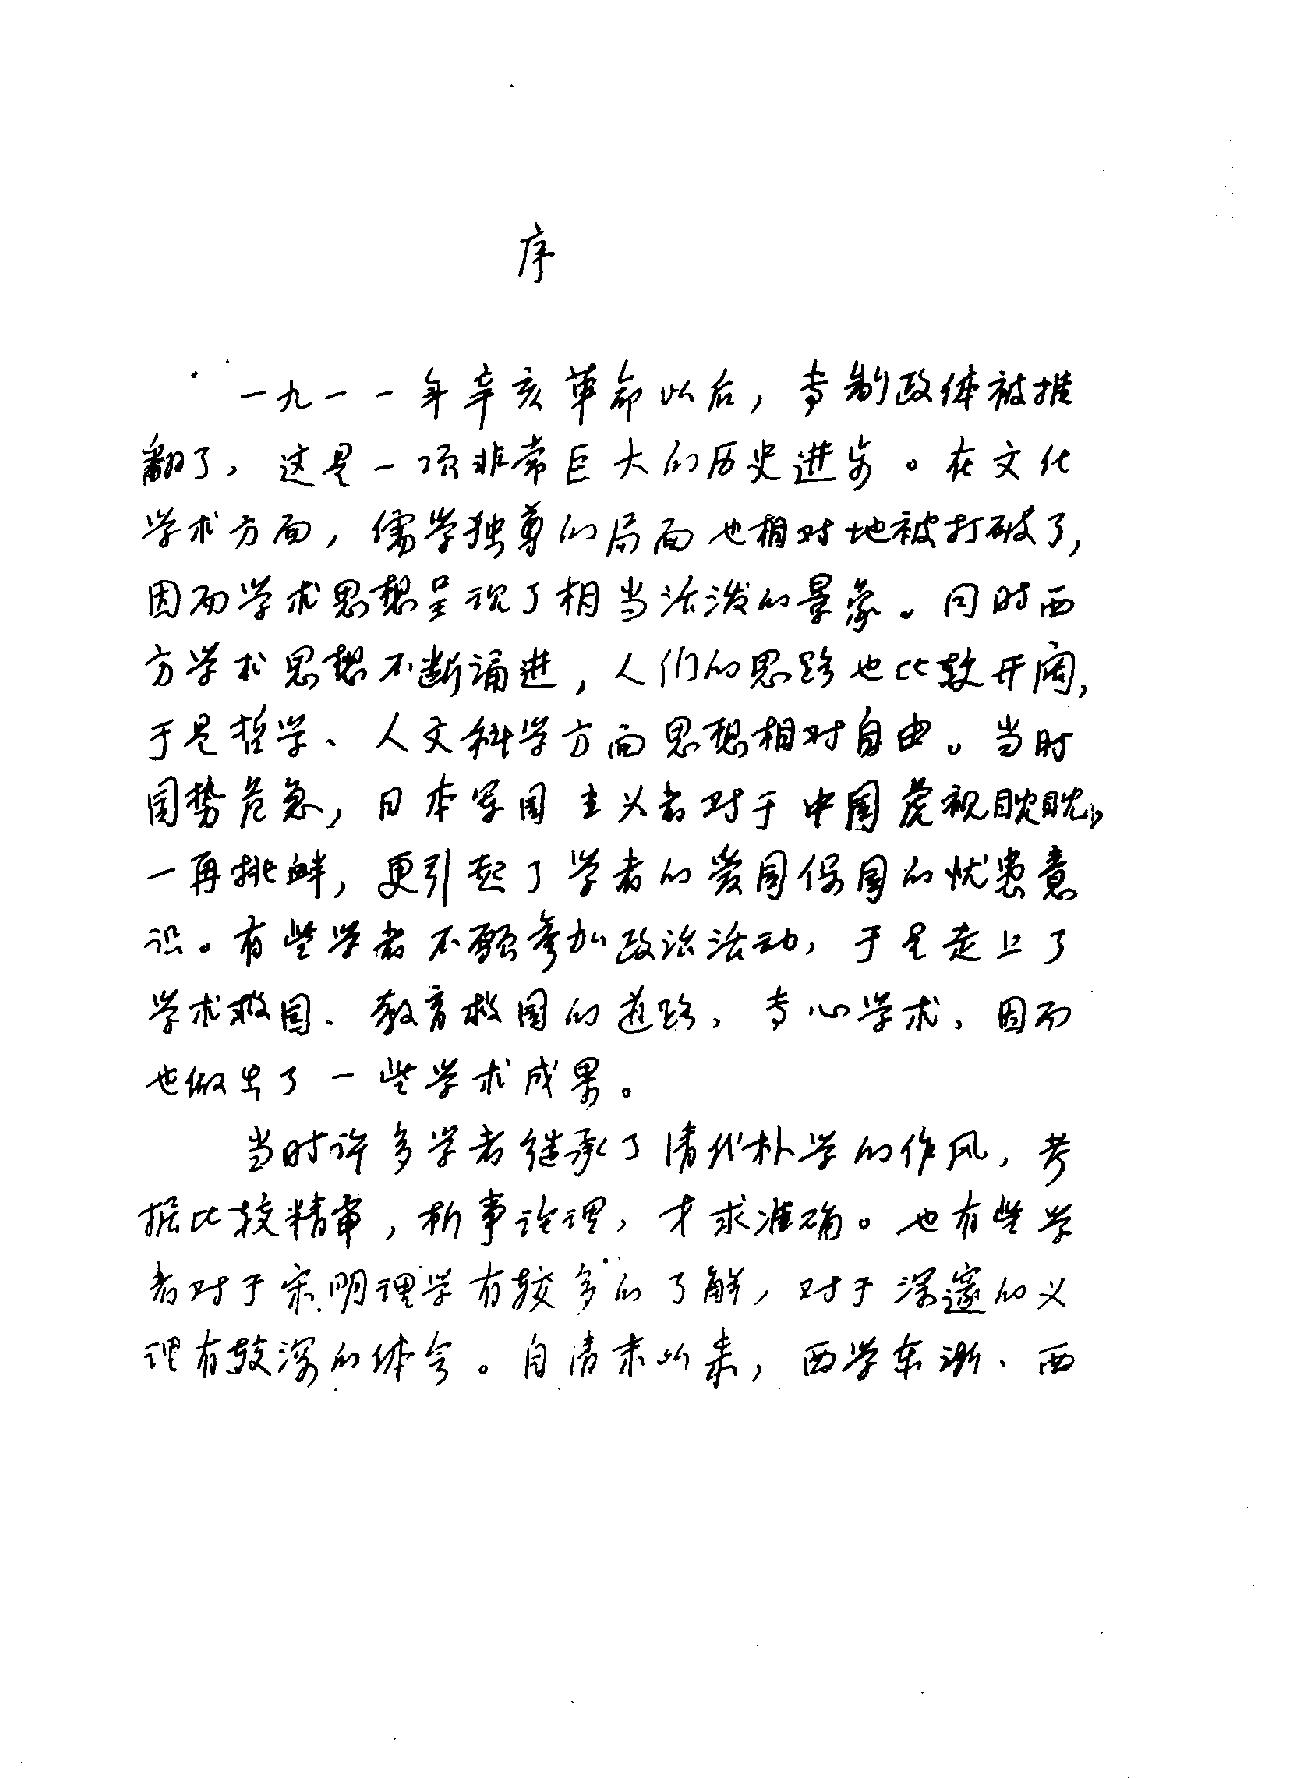 序
一九一一年辛亥革命以后，专制政体被推
翻了，这是一项非常巨大的历史进步。在文化
学术方面，儒学独尊的局面也相对地被打破了，
因而学术思想呈现了相当活泼的景象。同时西
方学术思想不断涌进，人们的思路也比较开阔，
于是哲学、人文科学方面思想相对自由。当时
国势危急，日本军国主义者对于中国虎视眈眈，
一再挑衅，更引起了学者的爱国保国的忧患意
识。有些学者不愿参加政治活动，于是走上了
学术救国、教育救国的道路，专心学术，因而
也做出了一些学术成果。
当时许多学者继承了清代朴学的作风，考
据比较精审，析事论理，才求准确。也有些学
者对于宋明理学有较多的了解，对于深邃的义
理有较深的体会。自清末以来，西学东渐、西